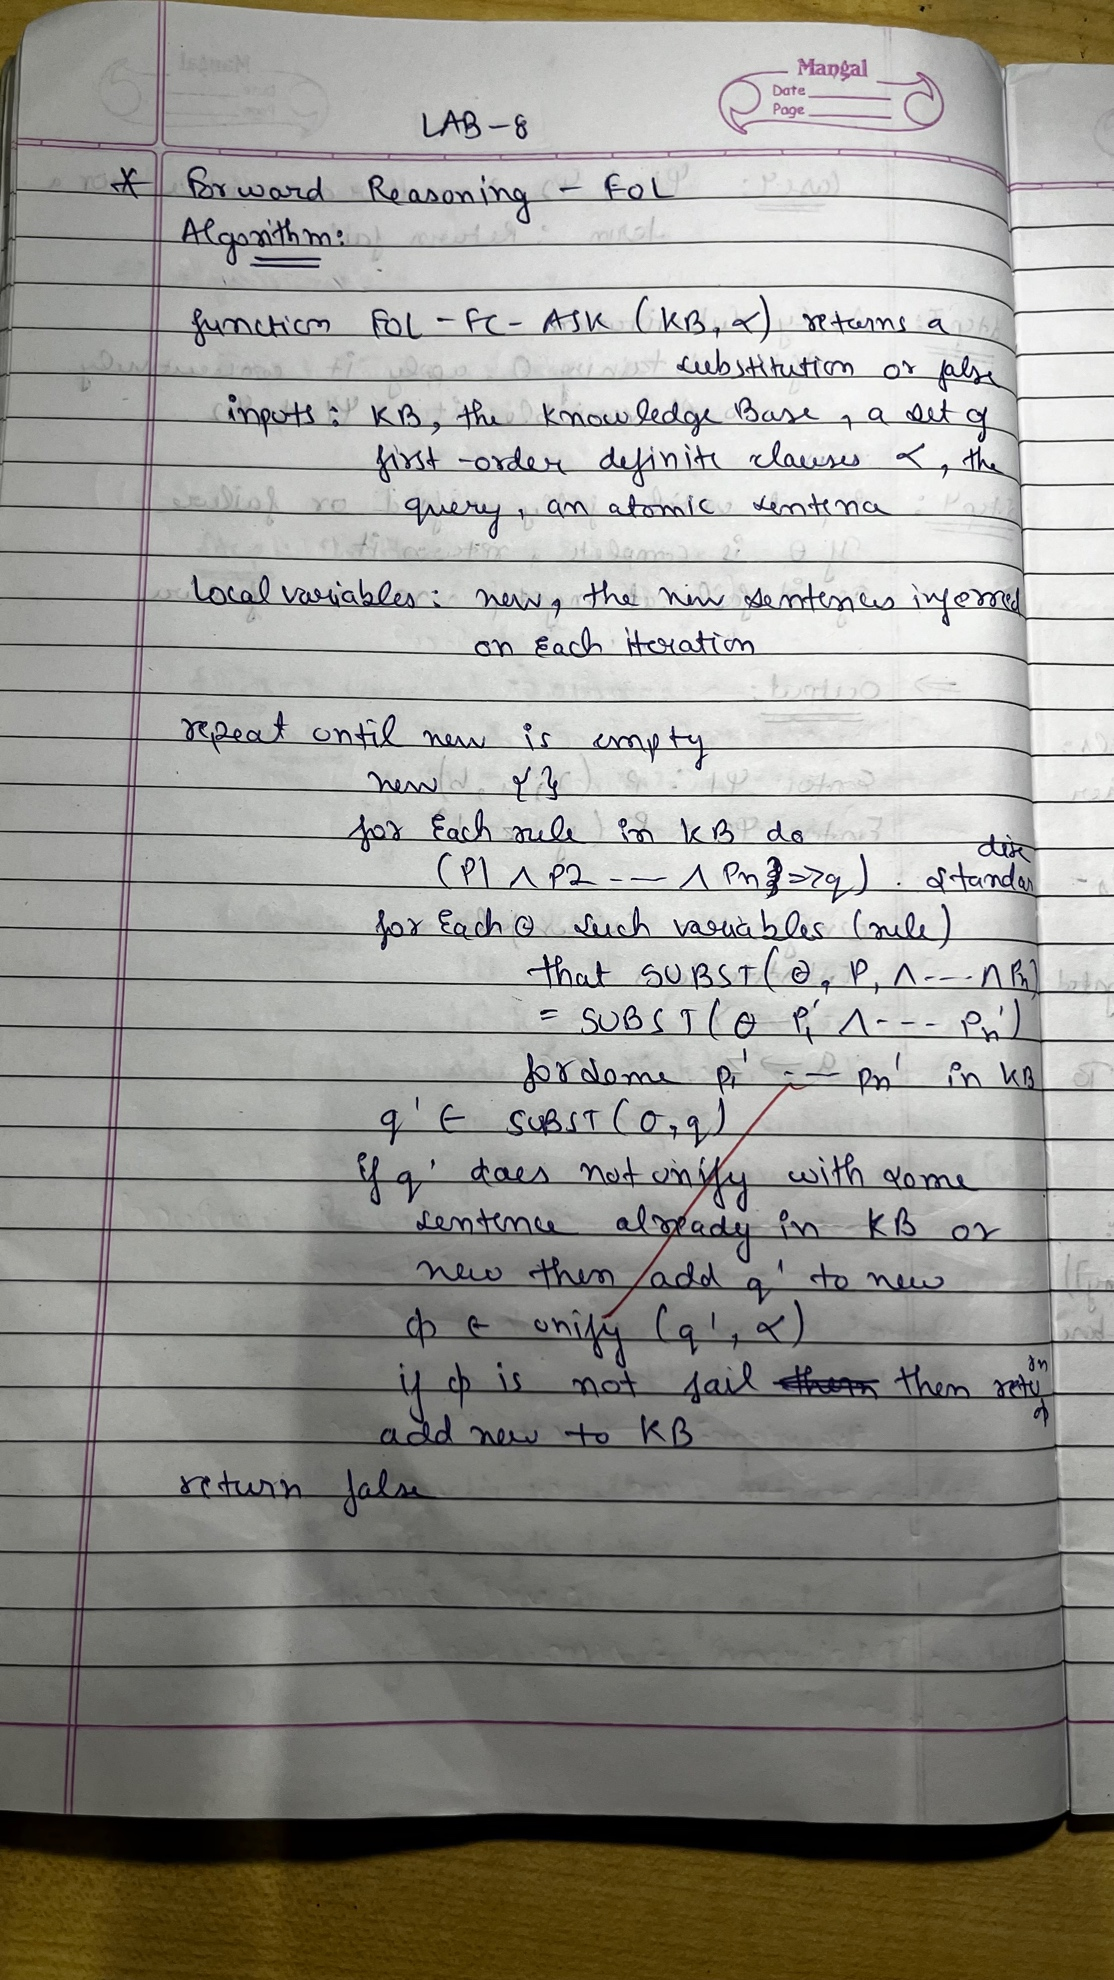 Mangal
Date
Page
LAB-8
* Forward Reasoning - FOL
Algorithm:
function FOL-FC-ASK (KB, α) returns a
substitution or false
inputs: KB, the Knowledge Base, a set of
first-order definite clauses α, the
query, an atomic sentence
Local variables: new, the new sentences inferred
on each iteration
repeat until new is empty
new {}
for Each rule in KB do
(P1 ∧ P2 --- ∧ Pn => q) . Standar dise
for Each θ such variables (rule)
that SUBST(θ, P, ∧---∧ Pn)
= SUBST(θ P1' ∧--- Pn')
for some P1' -- Pn' in KB
q' ← SUBST(θ, q)
if q' does not unify with some
sentence already in KB or
new then add q' to new
φ ← unify (q', α)
if φ is not fail then return φ
add new to KB
return false